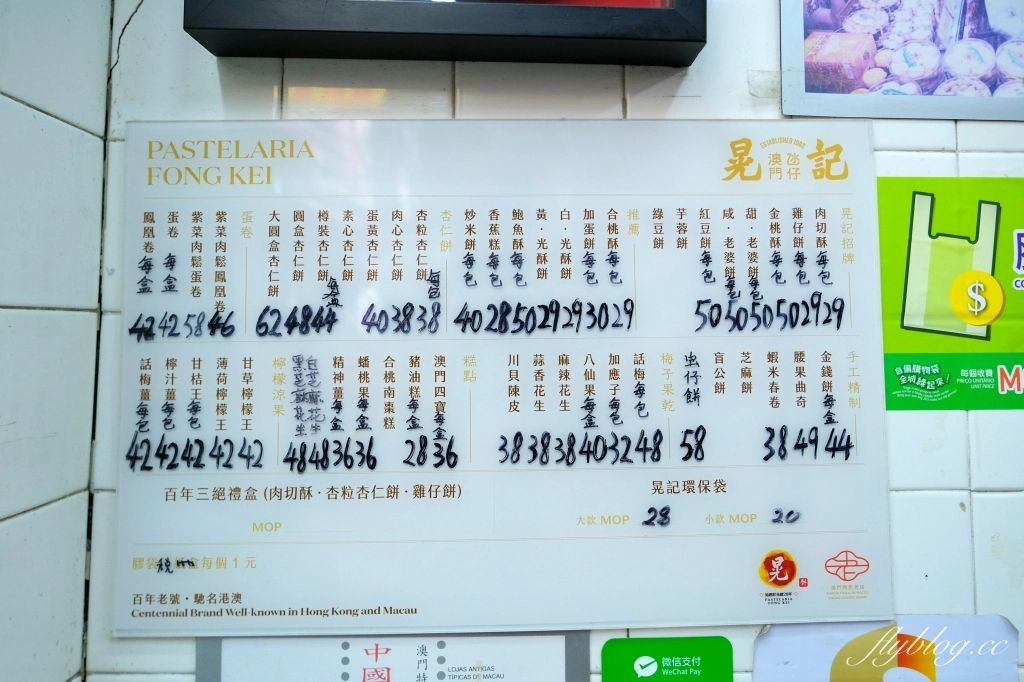 PASTELARIA
FONG KEI
晃記
ESTABLISHED 1906
澳門
氹仔
晃記招牌
肉切酥每包 29
雞仔餅每包 29
金桃酥每包 50
甜·老婆餅每包 50
咸·老婆餅每包 50
紅豆餅每包 50
芋蓉餅
綠豆餅
推薦
合桃酥每包 29
加蛋酥每包 30
白·光酥餅 29
黃·光酥餅 29
鮑魚酥每包 50
香蕉糕每包 28
炒米餅每包 40
杏仁餅
杏粒杏仁餅每包 38
肉心杏仁餅 38
蛋黃杏仁餅 40
素心杏仁餅
樽裝杏仁餅每盒 44
圓盒杏仁餅 48
大圓盒杏仁餅 62
蛋卷
紫菜肉鬆鳳凰卷 46
紫菜肉鬆蛋卷 58
蛋卷每盒 42
鳳凰卷每盒 42
手工精製
金錢餅每盒 44
腰果曲奇 49
蝦米春卷 38
芝麻餅
盲公餅
虫仔餅 58
梅子果乾
話梅每包 48
加應子每包 32
八仙果每盒 40
麻辣花生 38
蒜香花生 38
川貝陳皮 38
糕點
澳門四寶每盒 36
豬油糕每盒 28
合桃南棗糕
蟠桃果每盒 36
精神薑每盒 36
白芝麻花生 48
黑芝麻花生 48
檸檬涼果
甘草檸檬王 42
薄荷檸檬王 42
甘桔王每包 42
檸汁薑每包 42
話梅薑每包 42
百年三絕禮盒 (肉切酥·杏粒杏仁餅·雞仔餅)
MOP
晃記環保袋
大款 MOP 28 小款 MOP 20
膠袋稅 每個1元
百年老號·馳名港澳
Centennial Brand Well-known in Hong Kong and Macau
晃
PASTELARIA
FONG KEI
$
自備購物袋
全城綠起來!
每個收費
PREÇO UNITÁRIO
UNIT PRICE
M
中國
澳門特
LOJAS ANTIGAS
TÍPICAS DE MACAU
微信支付
WeChat Pay
flyblog.cc